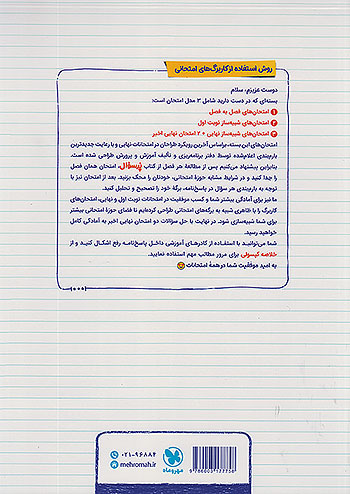 روش استفاده از کاربرگ‌های امتحانی
دوست عزیزم، سلام
بسته‌ای که در دست دارید شامل ۳ مدل امتحان است:
۱ امتحان‌های فصل به فصل
۲ امتحان‌های شبیه‌ساز نوبت اول
۳ امتحان‌های شبیه‌ساز نهایی + ۲ امتحان نهایی اخیر
امتحان‌های این بسته، براساس آخرین رویکرد طراحان در امتحانات نهایی و با رعایت جدیدترین
بارم‌بندی اعلام‌شده توسط دفتر برنامه‌ریزی و تألیف آموزش و پرورش طراحی شده است.
بنابراین پیشنهاد می‌کنیم پس از مطالعهٔ هر فصل از کتاب پُرسؤال، امتحان همان فصل
را جدا کنید و در شرایط مشابه حوزهٔ امتحانی، خودتان را محک بزنید. بعد از امتحان نیز با
توجه به بارم‌بندی هر سؤال در پاسخ‌نامه، برگهٔ خود را تصحیح و تحلیل کنید.
ما نیز برای آمادگی بیشتر شما و کسب موفقیت در امتحانات نوبت اول و نهایی، امتحان‌های
کاربرگ را با ظاهری شبیه به برگه‌های امتحانی طراحی کرده‌ایم تا فضای حوزهٔ امتحانی بیشتر
برای شما شبیه‌سازی شود. در نهایت با حل سؤالات دو امتحان نهایی اخیر به آمادگی کامل
خواهید رسید.
شما می‌توانید با استفاده از کادرهای آموزشی داخل پاسخ‌نامه رفع اشکال کنید و از
خلاصه کپسولی برای مرور مطالب مهم استفاده نمایید.
به امید موفقیت شما در همهٔ امتحانات
۰۲۱-۹۶۸۸۴
mehromah.ir
مهروماه
9786003177758